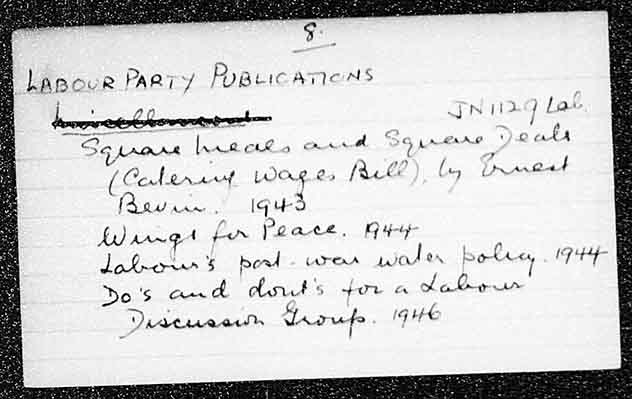 8.
LABOUR PARTY PUBLICATIONS
Miscellaneous
JN1129 Lab.
Square Meals and Square Deals
(Catering Wages Bill), by Ernest
Bevin. 1943
Wings for Peace. 1944
Labour's post-war water policy. 1944
Do's and dont's for a Labour
Discussion Group. 1946